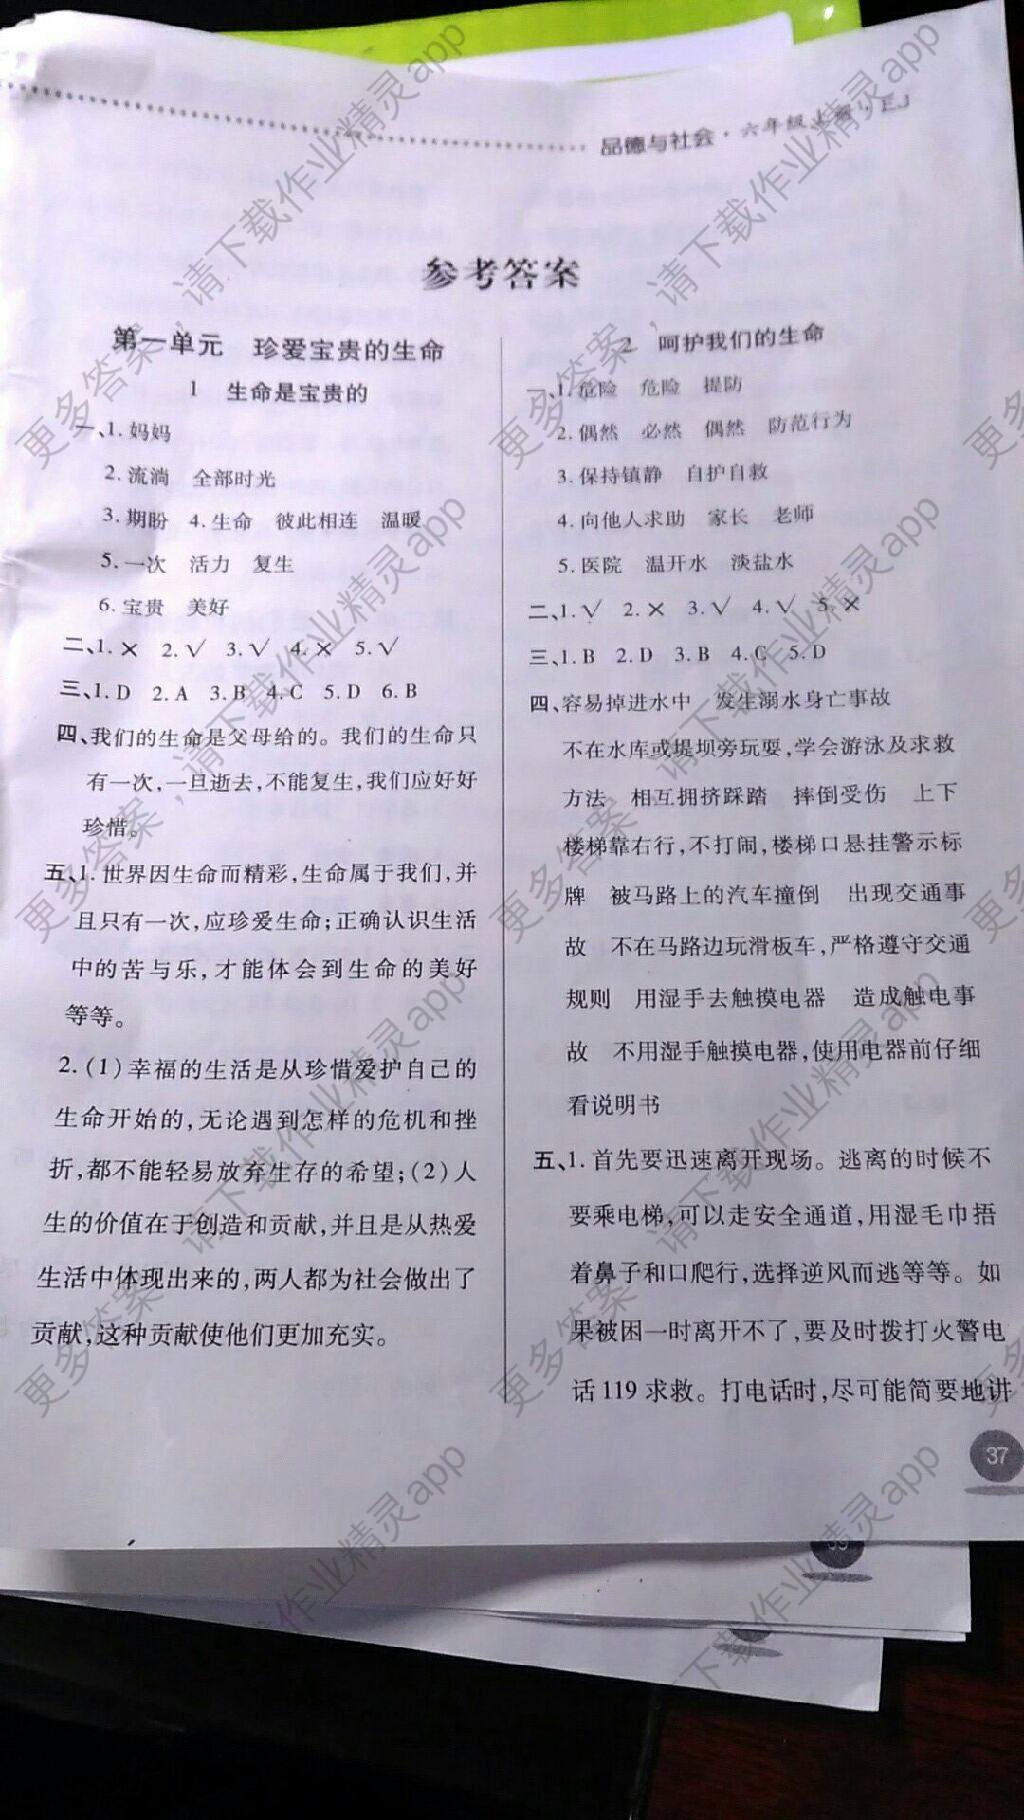 品德与社会·六年级上册·EJ
参考答案
第一单元 珍爱宝贵的生命
1 生命是宝贵的
一、1.妈妈
2.流淌 全部时光
3.期盼 4.生命 彼此相连 温暖
5.一次 活力 复生
6.宝贵 美好
二、1.× 2.√ 3.√ 4.× 5.√
三、1.D 2.A 3.B 4.C 5.D 6.B
四、我们的生命是父母给的。我们的生命只
有一次,一旦逝去,不能复生,我们应好好
珍惜。
五、1.世界因生命而精彩,生命属于我们,并
且只有一次,应珍爱生命;正确认识生活
中的苦与乐,才能体会到生命的美好
等等。
2.(1)幸福的生活是从珍惜爱护自己的
生命开始的,无论遇到怎样的危机和挫
折,都不能轻易放弃生存的希望;(2)人
生的价值在于创造和贡献,并且是从热爱
生活中体现出来的,两人都为社会做出了
贡献,这种贡献使他们更加充实。
2 呵护我们的生命
一、1.危险 危险 提防
2.偶然 必然 偶然 防范行为
3.保持镇静 自护自救
4.向他人求助 家长 老师
5.医院 温开水 淡盐水
二、1.√ 2.× 3.√ 4.√ 5.×
三、1.B 2.D 3.B 4.C 5.D
四、容易掉进水中 发生溺水身亡事故
不在水库或堤坝旁玩耍,学会游泳及求救
方法 相互拥挤踩踏 摔倒受伤 上下
楼梯靠右行,不打闹,楼梯口悬挂警示标
牌 被马路上的汽车撞倒 出现交通事
故 不在马路边玩滑板车,严格遵守交通
规则 用湿手去触摸电器 造成触电事
故 不用湿手触摸电器,使用电器前仔细
看说明书
五、1.首先要迅速离开现场。逃离的时候不
要乘电梯,可以走安全通道,用湿毛巾捂
着鼻子和口爬行,选择逆风而逃等等。如
果被困一时离开不了,要及时拨打火警电
话119求救。打电话时,尽可能简要地讲
37
39
更多答案,请下载作业精灵app
更多答案,请下载作业精灵app
更多答案,请下载作业精灵app
更多答案,请下载作业精灵app
更多答案,请下载作业精灵app
更多答案,请下载作业精灵app